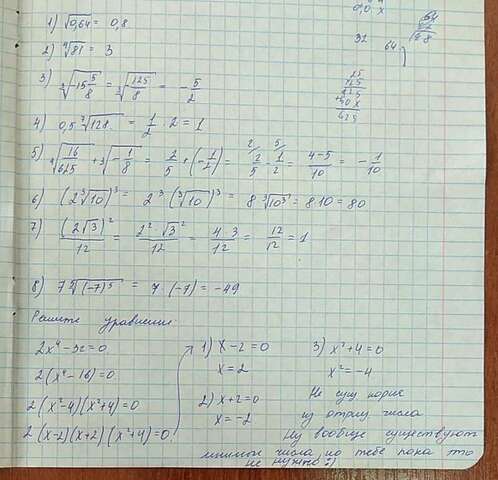 1) √0,64 = 0,8
2) ⁴√81 = 3
3) ³√-15 5/8 = ³√125/8 = - 5/2
4) 0,5 ⁷√128 = 1/2 · 2 = 1
5) ⁴√16/625 + ³√-1/8 = 2/5 + (-1/2) = 2/5 - 1/2 = 4-5/10 = - 1/10
6) (2 ³√10)³ = 2³ · (³√10)³ = 8 ³√10³ = 8·10 = 80
7) (2√3)²/12 = 2²·√3²/12 = 4·3/12 = 12/12 = 1
8) 7 ⁵√(-7)⁵ = 7·(-7) = -49
Решите уравнение
2x⁴-32=0
2(x⁴-16)=0
2(x²-4)(x²+4)=0
2(x-2)(x+2)(x²+4)=0
1) x-2=0
x=2
2) x+2=0
x=-2
3) x²+4=0
x²=-4
Не сущ корис
из отриц числа
Ну вообще существуют
мнимые числа но тебе пока это
не нужно :)